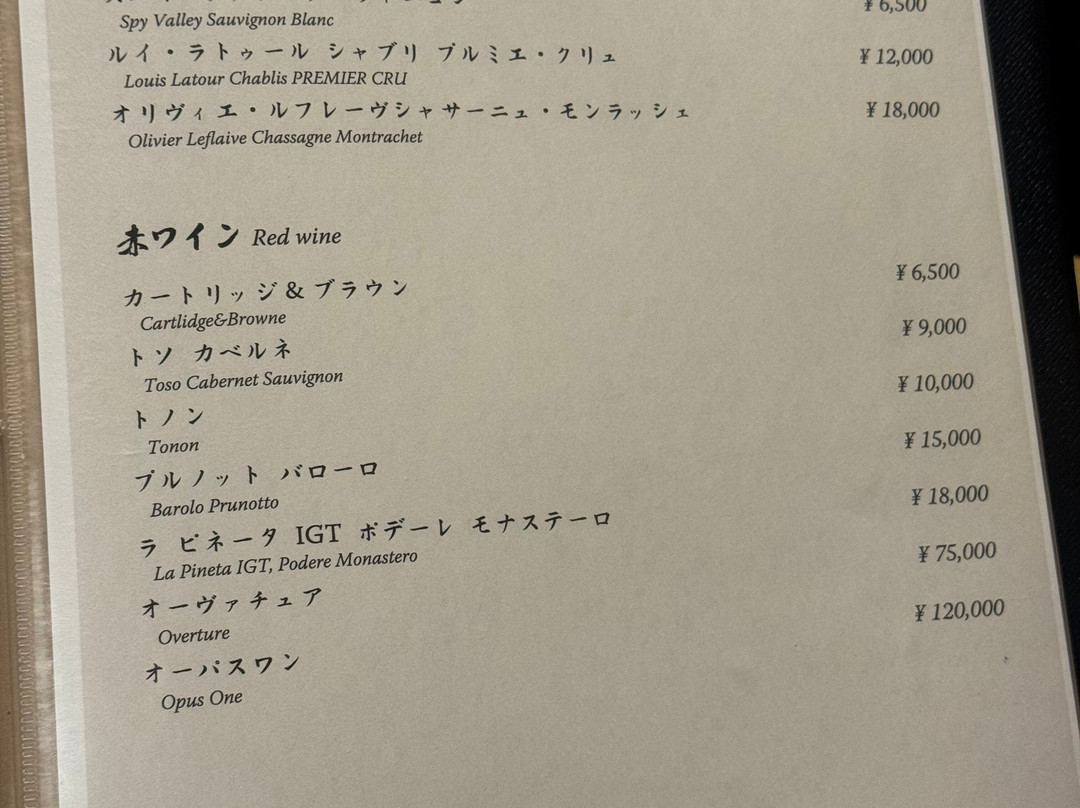 ¥ 6,500
Spy Valley Sauvignon Blanc
ルイ・ラトゥール シャブリ プルミエ・クリュ ¥ 12,000
Louis Latour Chablis PREMIER CRU
オリヴィエ・ルフレーヴシャサーニュ・モンラッシェ ¥ 18,000
Olivier Leflaive Chassagne Montrachet
赤ワイン Red wine
カートリッジ&ブラウン ¥ 6,500
Cartlidge&Browne
トソ カベルネ ¥ 9,000
Toso Cabernet Sauvignon
トノン ¥ 10,000
Tonon
プルノット バローロ ¥ 15,000
Barolo Prunotto
ラ ピネータ IGT ポデーレ モナステーロ ¥ 18,000
La Pineta IGT, Podere Monastero
オーヴァチュア ¥ 75,000
Overture
オーパスワン ¥ 120,000
Opus One